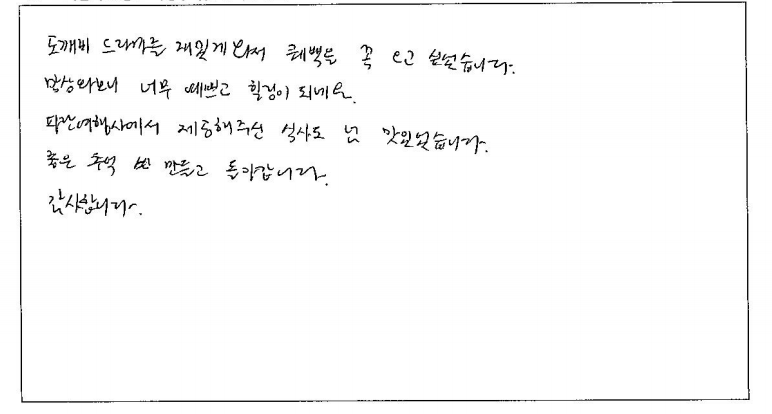 도깨비 드라마를 재밌게 봐서 퀘백을 꼭 오고 싶었습니다.
막상와보니 너무 예쁘고 힐링이 되네요.
파란여행사에서 제공해주신 식사도 넘 맛있었습니다.
좋은 추억 만들고 돌아갑니다.
감사합니다.